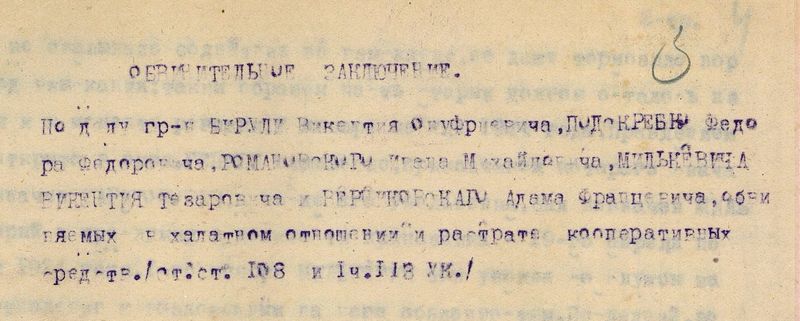 3
ОБВИНИТЕЛЬНОЕ ЗАКЛЮЧЕНИЕ.
По делу гр-н БИРУЛИ Викентия Онуфриевича, ПОДОКРЕБКИ Федо
ра Федоровича, РОМАНОВСКОГО Ивана Михайловича, МИЛЬКЕВИЧА
ВИКЕНТИЯ Гезаровича и Адама Францевича, обви
няемых в халатном отношении и растрате кооперативных
средств./от.ст. 108 и 1ч.113 УК./